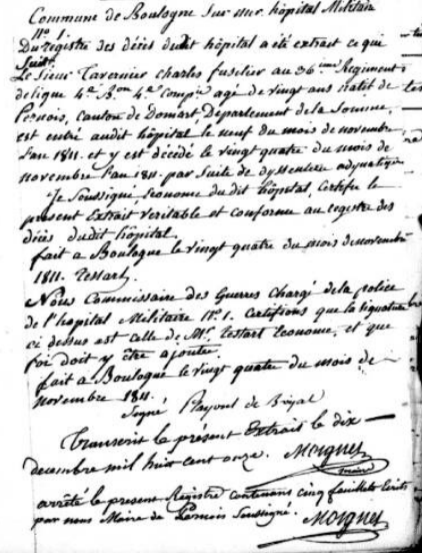 Commune de Boulogne Sur mer. hôpital Militaire
N° 1.
Du registre des décès dudit hôpital a été extrait ce qui
Suit.
Le Sieur Tavernier charles fuselier au 36ème Regiment
de ligne 4e Bon 4e Compie agé de vingt ans natif de
Pernois, canton de Domart Departement de la Somme,
est entré audit hôpital le neuf du mois de novembre
l'an 1811. et y est décédé le vingt quatre du mois de
novembre l'an 1811. par Suite de dyssenterie adynamique
Je Soussigné, Econome dudit hôpital, Certifie le
present Extrait veritable et conforme au registre des
décès dudit hôpital.
fait a Boulogne le vingt quatre du mois de novembre
1811. Testart,
Nous Commissaire des Guerres Chargé dela police
de l'hopital Militaire N° 1. Certifions que la signature
ci dessus est celle de Mr. Testart Econome, et que
foi doit y être ajoutée.
fait a Boulogne le vingt quatre du mois de
novembre 1811.
Signé, de
Transcrit le présent Extrait le dix
decembre mil huit cent onze. Moignet
maire
arrêté le present Registre contenans cinq feuillets Ecrits
par nous Maire de Pernois Soussigné. Moignet